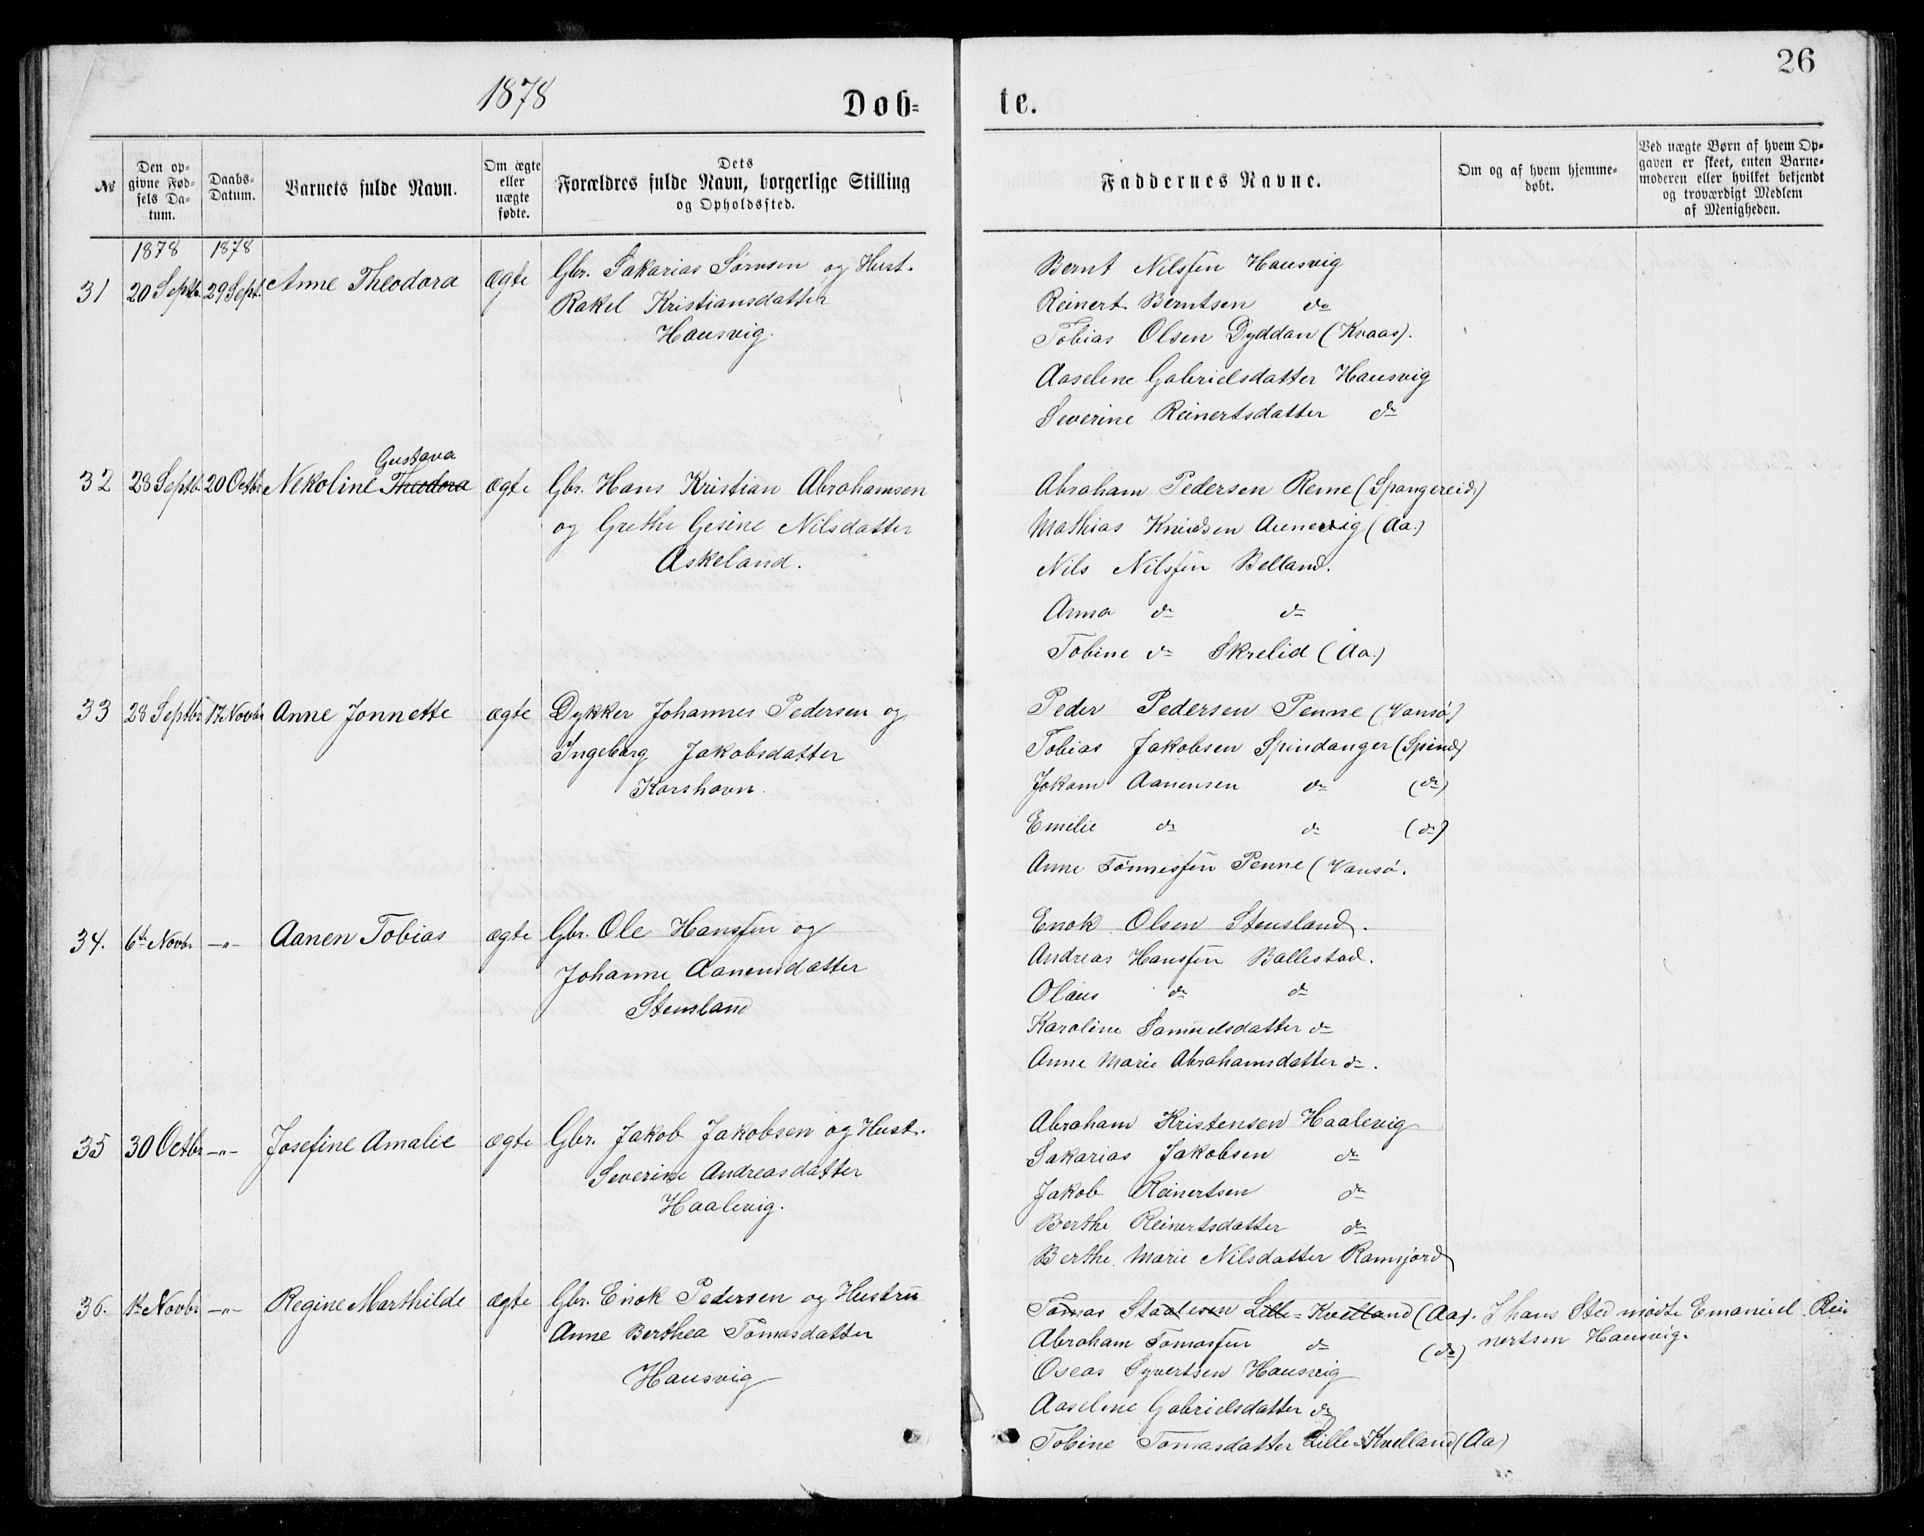 26
1878 Døb- te.
№
Den op-
givne Fød-
sels Da-
tum.
Daabs-
Datum.
Barnets fulde Navn.
Om ægte
eller
nægte
fødte.
Dets
Forældres fulde Navn, borgerlige Stilling
og Opholdssted.
Faddernes Navne.
Om og af hvem hjemme-
døbt.
Ved nægte Børn af hvem Op-
gaven er skeet, enten Barne-
moderen eller hvilket bekjendt
og troværdigt Medlem
af Menigheden.
1878 1878
31 20 Septb. 29 Sept. Anne Theodora ægte Gbr. Sakarias Sørensen og Hust.
Rakel Kristiansdatter
Hausvig.
Bernt Nilssen Hausvig
Reinert Berntsen do
Tobias Olsen Dyddan (Kvaas).
Aaselene Gabrielsdatter Hausvig
Severine Reinertsdatter do
Gustava
32 28 Septb. 20 Octbr Nekoline Theodora ægte Gbr. Hans Kristian Abrahamsen
og Grethe Gesine Nilsdatter
Askeland.
Abraham Pedersen Reme (Spangereid)
Mathias Knudsen Aunevig (Aa.)
Nils Nilssen Belland.
Anna do do
Tobine do Skrelid (Aa.)
33 28 Septbr 17 Novbr Anne Jonnette ægte Dykker Johannes Pedersen og
Ingeborg Jakobsdatter
Korshavn.
Peder Pedersen Penne (Vansø)
Tobias Jakobsen Spindanger (Spind)
Jokam Aanensen do (do)
Emelie do do (do)
Anne Tønnessen Penne (Vansø.
34. 6te Novbr —"— Aanen Tobias ægte Gbr. Ole Hanssen og
Johanne Aanensdatter
Stensland
Enok Olsen Stensland.
Andreas Hanssen Ballestad.
Olaus do do
Karoline Samuelsdatter do
Anne Marie Abrahamsdatter do.
35 30 Octbr —"— Josefine Amalie ægte Gbr. Jakob Jakobsen og Hust.
Severine Andreasdatter
Haalevig.
Abraham Kristensen Haalevig
Sakarias Jakobsen do
Jakob Reinertsen do
Berthe Reinertsdatter do
Berthe Marie Nilsdatter Ramsjord
36. 1te Novbr —"— Regine Marthilde ægte Gbr. Enok Pedersen og Hustru
Anne Berthea Tomasdatter
Hausvig
Tomas Staalesen Lille-Kvelland (Aa). I hans Sted mødte Emanuel Rei
nertsen Hausvig.
Abraham Tomassen do (do)
Oseas Syvertsen Hausvig
Aaselene Gabrielsdatter do
Tobine Tomasdatter Lille-Kvelland (Aa)